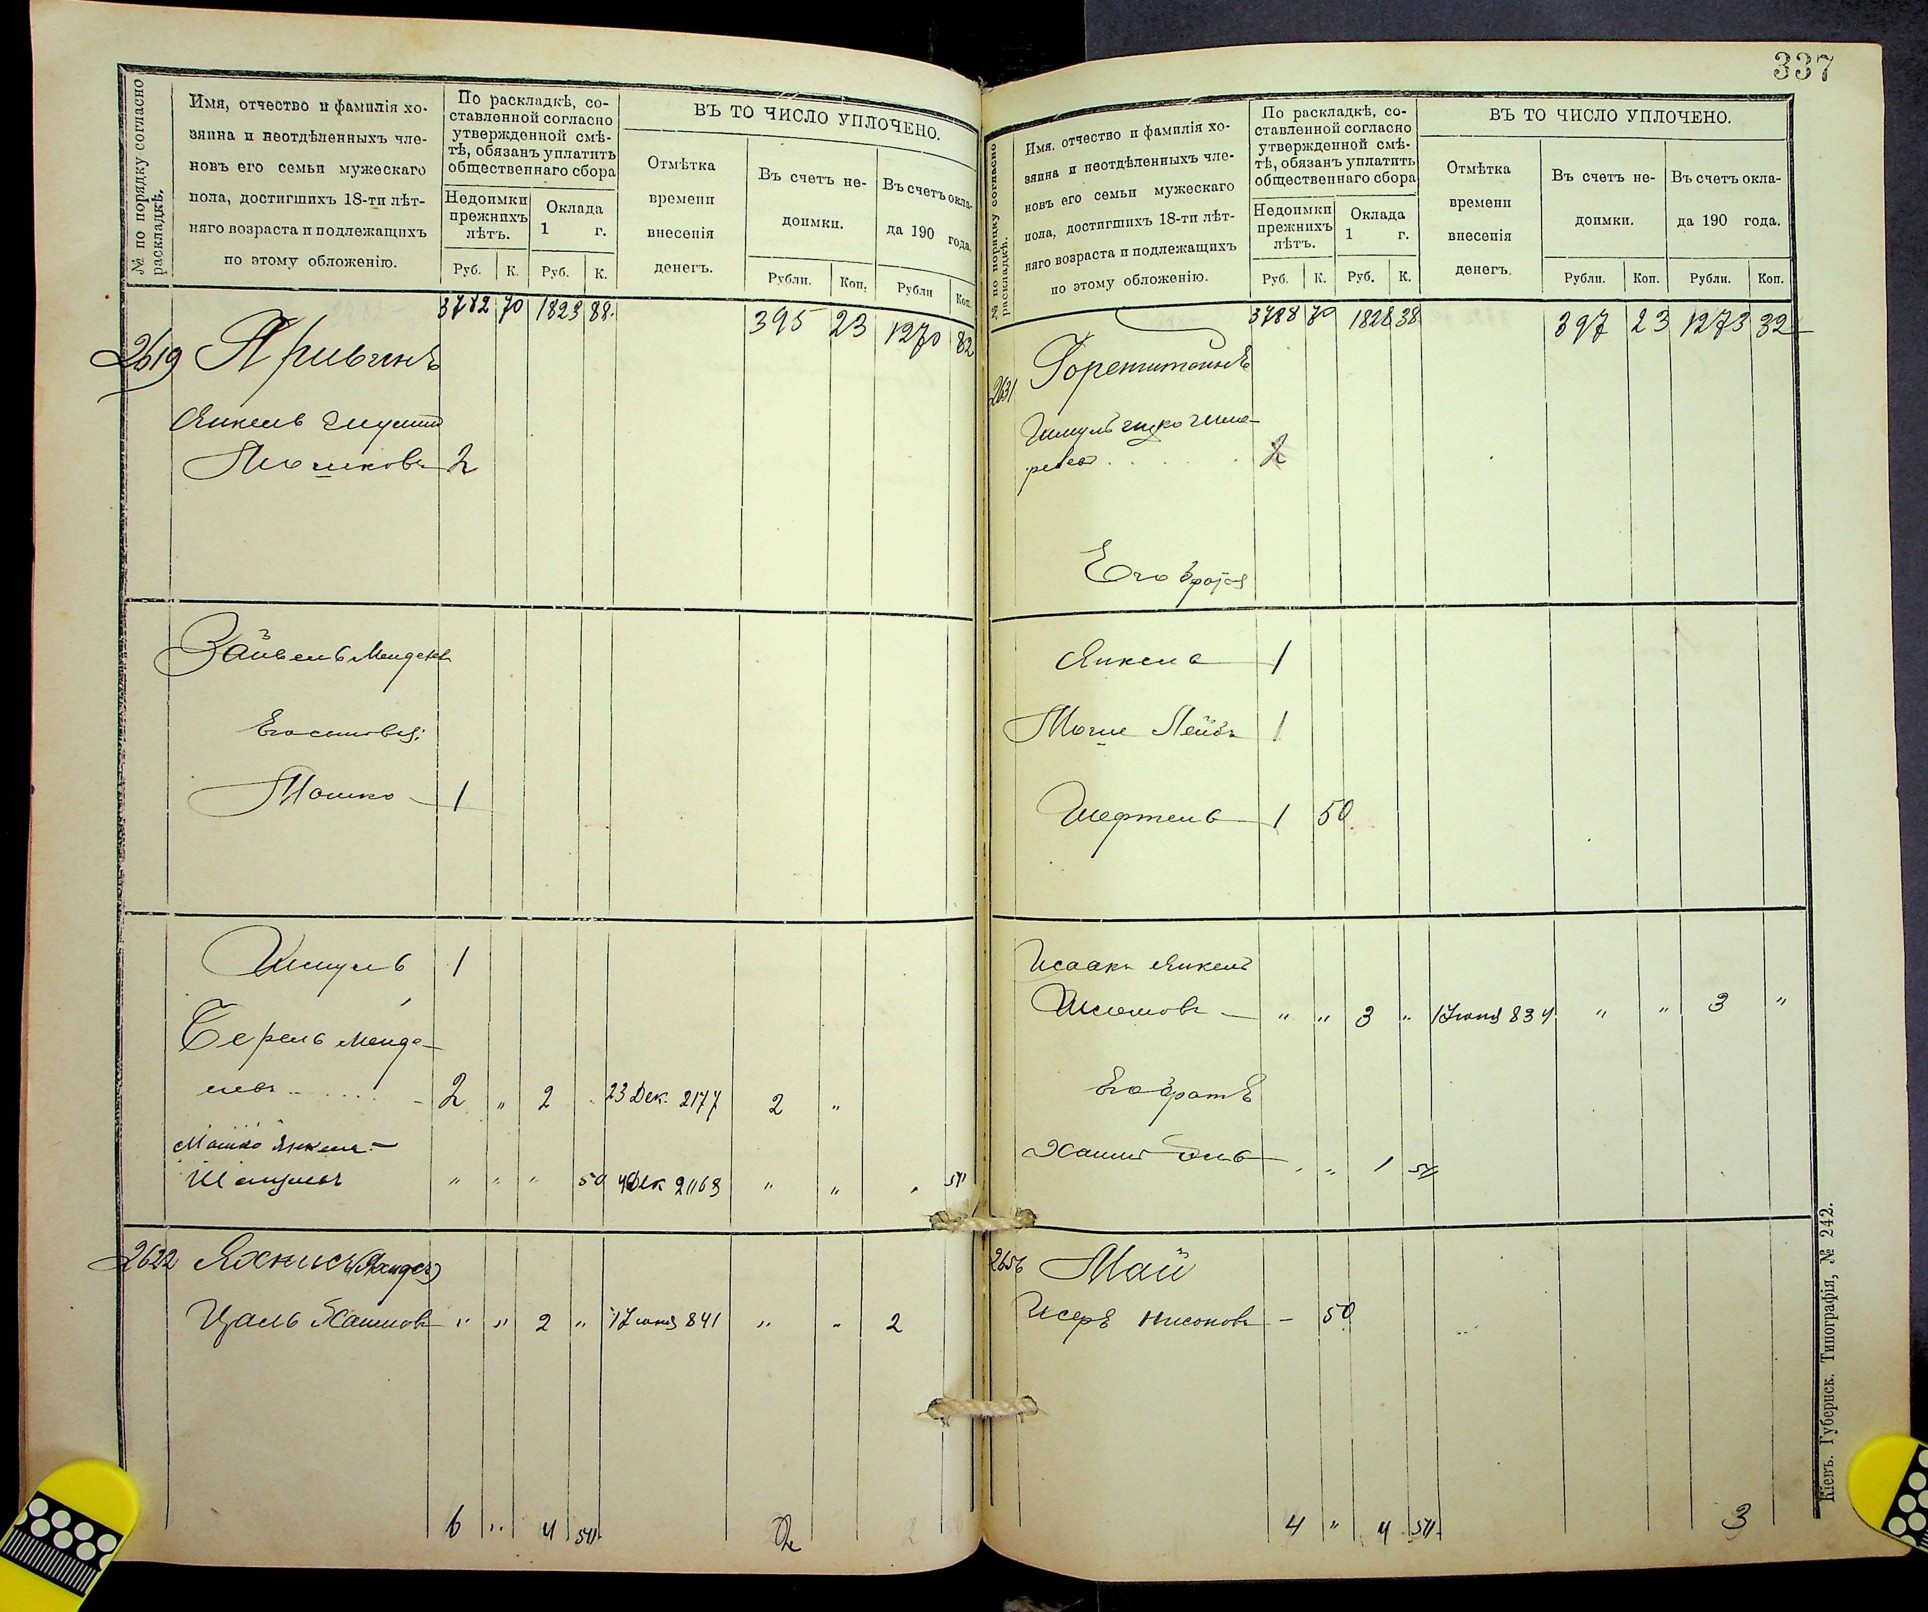 337
№ по порядку согласно раскладкѣ.
Имя, отчество и фамилія хо-
зяина и неотдѣленныхъ чле-
новъ его семьи мужескаго
пола, достигшихъ 18-ти лѣт-
няго возраста и подлежащихъ
по этому обложенію.
По раскладкѣ, со-
ставленной согласно
утвержденной смѣ-
тѣ, обязанъ уплатить
общественнаго сбора
Недоимки
прежнихъ
лѣтъ.
Оклада
1 г.
Руб. К. Руб. К.
ВЪ ТО ЧИСЛО УПЛОЧЕНО.
Отмѣтка
времени
внесенія
денегъ.
Въ счетъ не-
доимки.
Въ счетъ окла-
да 190 года.
Рубли. Коп. Рубли Коп.
3782 70 1823 88 395 23 1270 82
2619
Янкель
Мошковъ 2
Зайвель Мендел
Его сыновья:
Мошко 1
Шмуль 1
Берель Менде-
левъ 2 „ 2 23 Дек. 2177 2 „
Мошко Янкел-
Шмулевъ „ „ „ 50 Дек 2163 „ „ 50
2622 Яхнисъ
Цаль Хаимовъ „ „ 2 „ 1 Іюня 841 „ „ 2
6 „ 4 50 2
№ по порядку согласно раскладкѣ.
Имя, отчество и фамилія хо-
зяина и неотдѣленныхъ чле-
новъ его семьи мужескаго
пола, достигшихъ 18-ти лѣт-
няго возраста и подлежащихъ
по этому обложенію.
По раскладкѣ, со-
ставленной согласно
утвержденной смѣ-
тѣ, обязанъ уплатить
общественнаго сбора
Недоимки
прежнихъ
лѣтъ.
Оклада
1 г.
Руб. К. Руб. К.
ВЪ ТО ЧИСЛО УПЛОЧЕНО.
Отмѣтка
времени
внесенія
денегъ.
Въ счетъ не-
доимки.
Въ счетъ окла-
да 190 года.
Рубли. Коп. Рубли. Коп.
3788 70 1828 38 397 23 1273 32
2631 Горенштейнъ
Шмуль Ицко
2
Его братья
Янкель 1
Мошe Лейбъ 1
Шефтель 1 50
Исаакъ Янкель
Шломовъ „ „ 3 „ 1 Іюня 834 „ „ 3 „
Его братъ
Хаим „ 1 50
2656 Май
Исеръ Нисоновъ - 50
4 „ 4 50 3
Кіевъ. Губернск. Типографія, № 242.